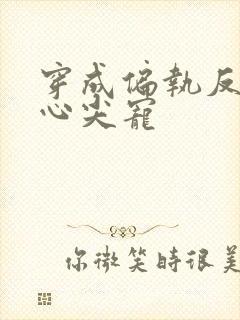 穿成偏執反
心尖寵
你微笑時很美